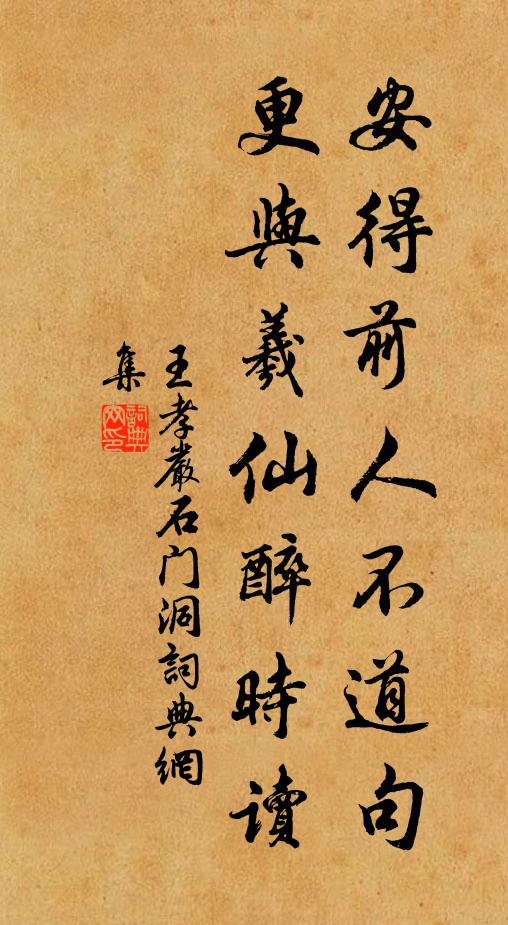 安得前人不道句
更與羲仙醉時读
王孝嚴石门洞詞典網
集
詞典
网印